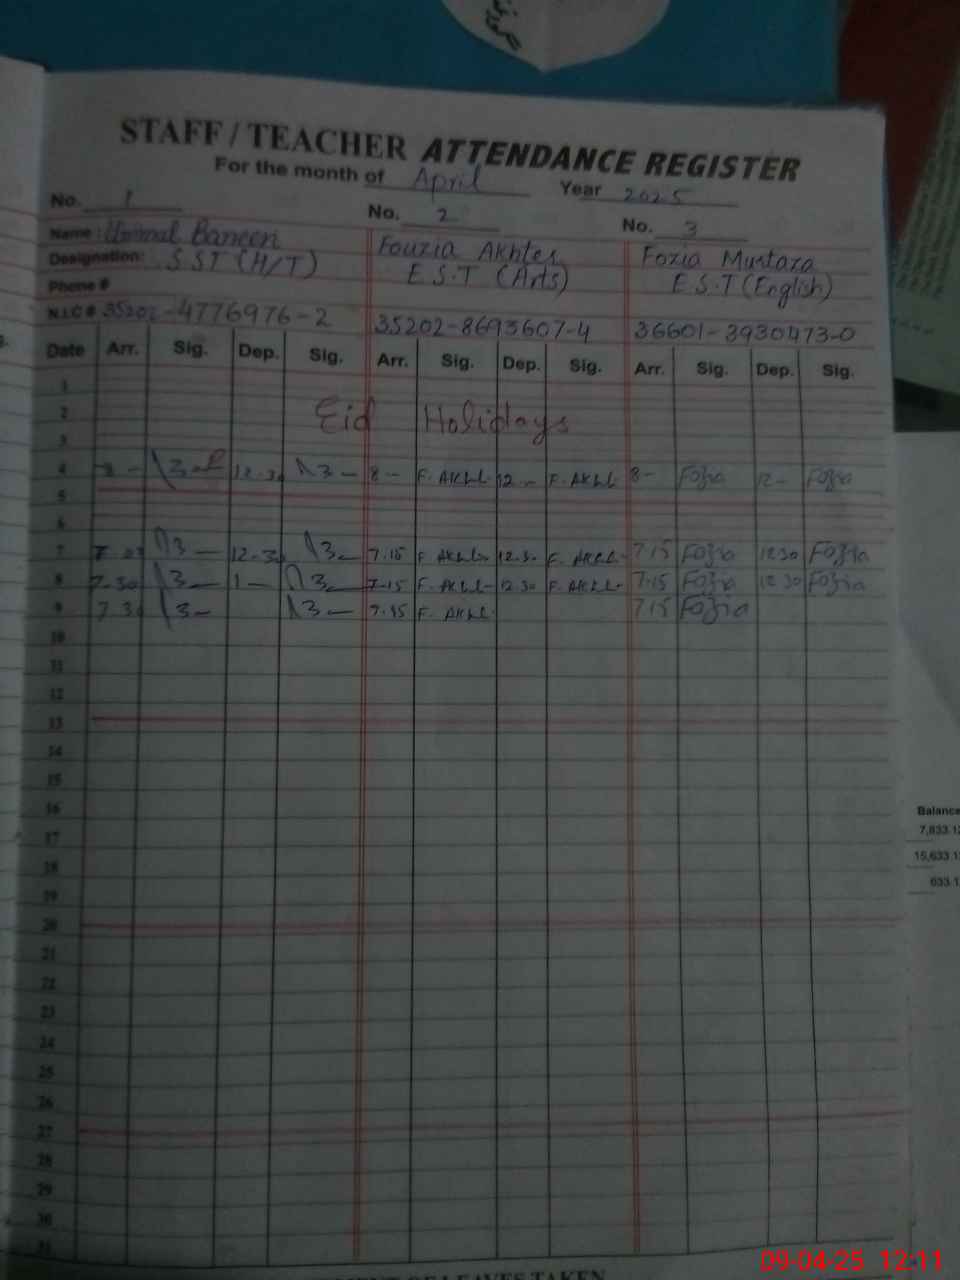 STAFF / TEACHER ATTENDANCE REGISTER
For the month of April Year 2025
No. 1 No. 2 No. 3
Name : Ummal Baneen Fouzia Akhter Fozia Murtaza
Designation: SST (H/T) E.S.T (Arts) E.S.T (English)
Phone #
N.I.C # 35202-4776976-2 35202-8693607-4 36601-3930473-0
Date Arr. Sig. Dep. Sig. Arr. Sig. Dep. Sig. Arr. Sig. Dep. Sig.
1
2 Eid Holidays
3
4 8 - 12-30 8 - F. Akht 12 - F. Akht 8 - Fozia 12 - Fozia
5
6
7 12-30 7.15 F. Akht 12.30 F. Akht 7.15 Fozia 12 30 Fozia
8 7-30 1 - 7-15 F. Akht 12 30 F. Akht 7.15 Fozia 12 30 Fozia
9 7 30 7.15 F. Akht 7.15 Fozia
10
11
12
13
14
15
16
17
18
19
20
21
22
23
24
25
26
27
28
29
30
31
Balance
7,833.1
15,633.1
633.1
LEAVES TAKEN
09-04-25 12:11